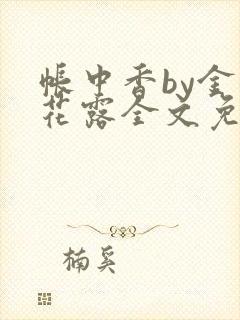 帐中香by金
花露全文免
楠奚